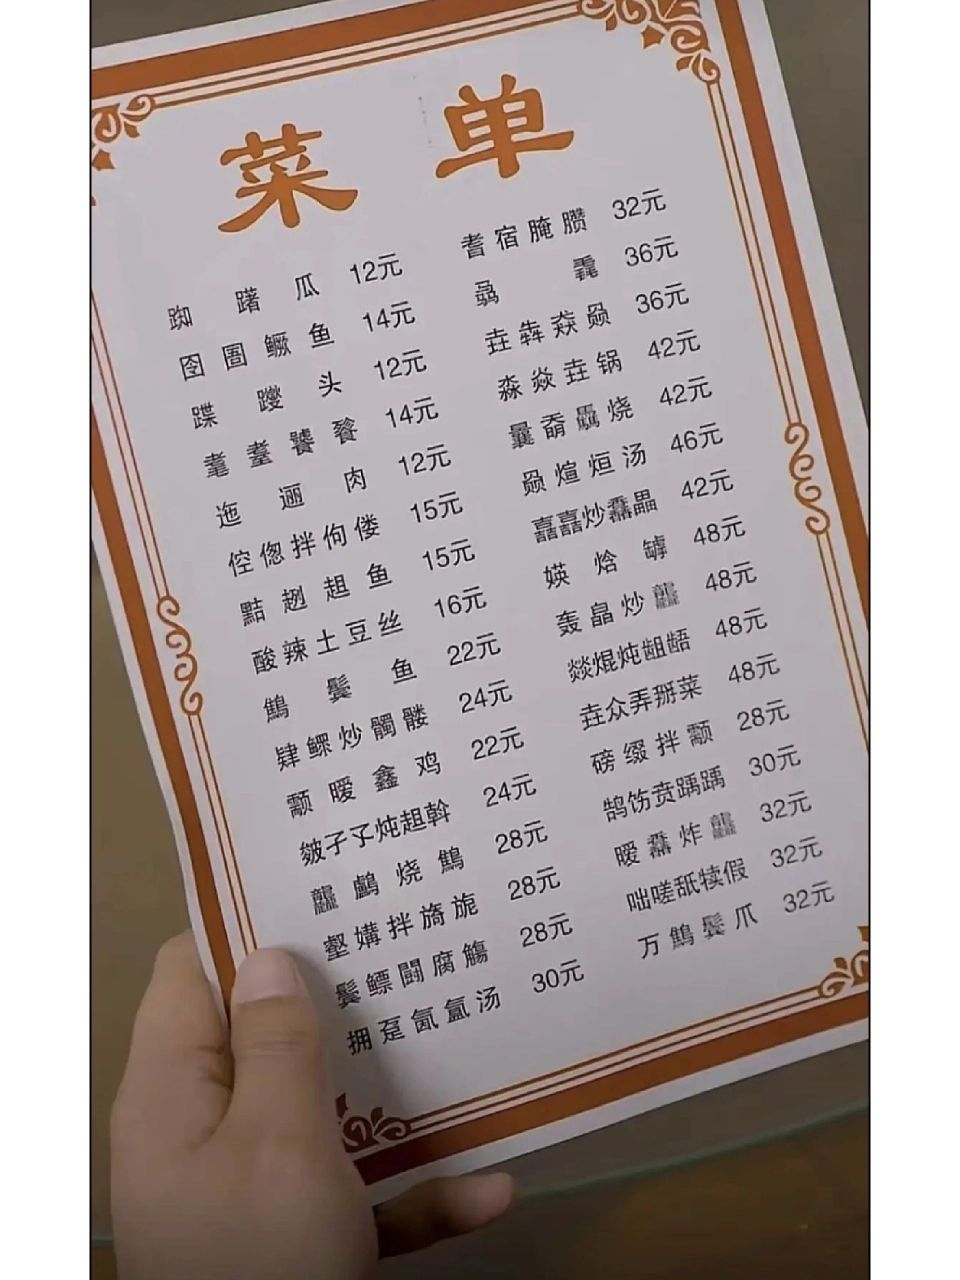 菜单
踟 躇 瓜 12元
囹 圄 鳜 鱼 14元
蹀 躞 头 12元
耄 耋 饕 餮 14元
迤 逦 肉 12元
倥 偬 拌 佝 偻 15元
黠 趔 趄 鱼 15元
酸 辣 土 豆 丝 16元
鬓 鱼 22元
肄 鳏 炒 髑 髅 24元
颥 暧 鑫 鸡 22元
皴子孓炖趄斡 24元
龘 鸕 烧 28元
壑 媾 拌 旖 旎 28元
鬓 鳔 闘 腐 觞 28元
拥 趸 氤 氲 汤 30元
耆 宿 腌 臜 32元
骉 毳 36元
垚 犇 猋 赑 36元
淼 焱 垚 锅 42元
曩 奣 驫 烧 42元
赑 煊 烜 汤 46元
嚞嚞炒馫畾 42元
媖 焓 罅 48元
轰 皛 炒 龘 48元
燚焜炖龃龉 48元
垚众弄掰菜 48元
磅 缀 拌 颥 28元
鹄饬贲踽踽 30元
暧 馫 炸 龘 32元
咄嗟舐犊假 32元
万 鬓 爪 32元